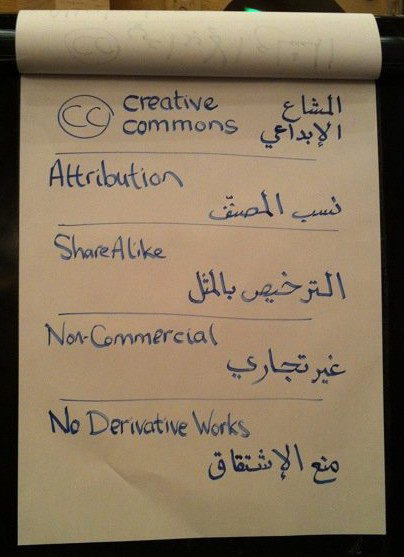 CC creative commons
المشاع الإبداعي
Attribution
نسب المصنّف
ShareAlike
الترخيص بالمثل
Non-Commercial
غير تجاري
No Derivative Works
منع الإشتقاق